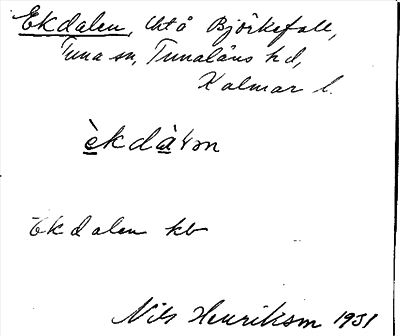 Ekdalen, Utå Björkefall,
Tuna sn, Tunaläns hd,
Kalmar l.
Ekdalen kb
Nils Henrikson 1931